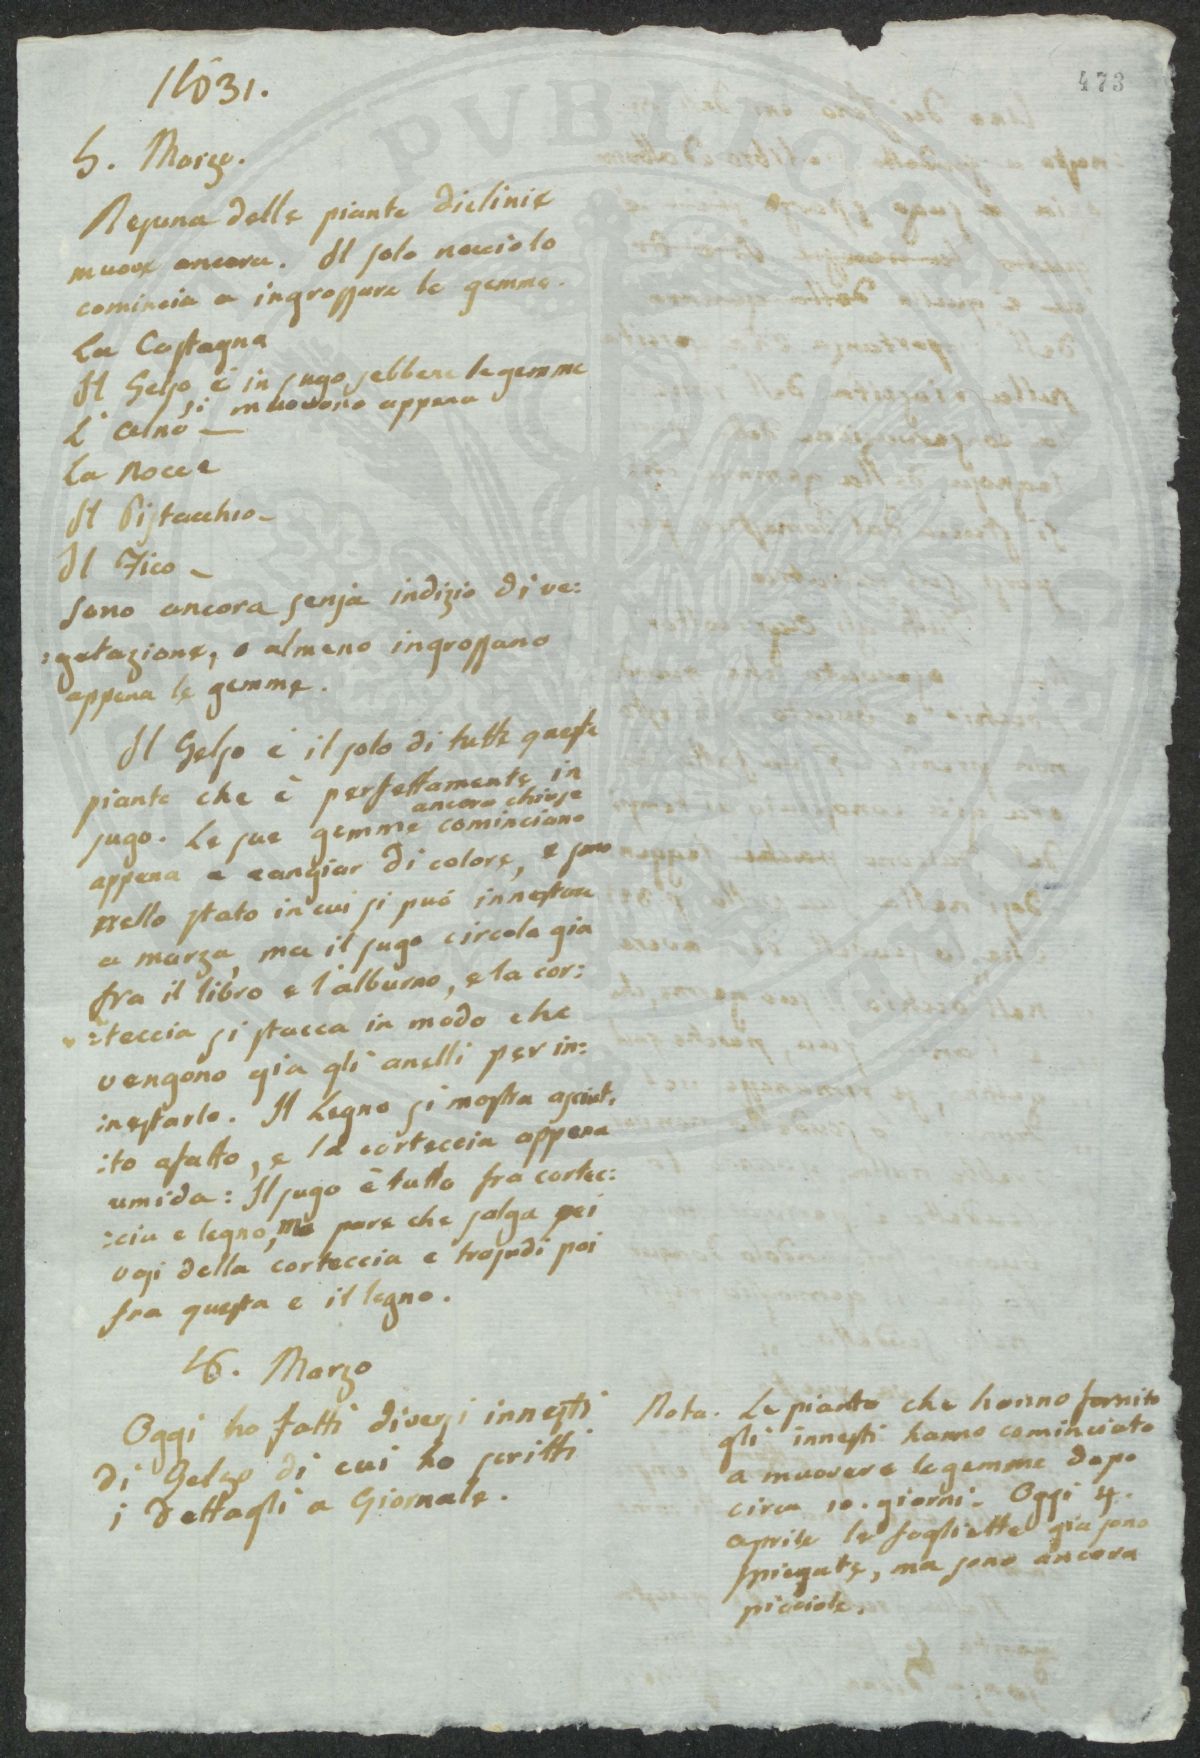 473
1831.
5. Marzo.
Nesuna delle piante diclinie
muove ancora. Il solo nocciolo
comincia a ingrossare le gemme.
La Castagna
Il Gelso è in sugo sebbene le gemme
si muovono appena
L'olno —
La Noce
Il Pistacchio —
Il Fico —
Sono ancora senza indizio di ve:
:getazione, o almeno ingrossano
appena le gemme.
Il Gelso è il solo di tutte queste
piante che è perfettamente in
sugo. Le sue gemme ancora chiuse cominciano
appena a cangiar di colore, e sono
nello stato in cui si può innestare
a marza, ma il sugo circola gia
fra il libro e l'alburno, e la cor:
:teccia si stacca in modo che
vengono gia gli anelli per in:
:nestarlo. Il Legno si mostra asciut:
:to afatto, e la corteccia appena
umida: Il sugo è tutto fra cortec:
:cia e legno, Mà pare che salga pei
vasi della corteccia e trasudi poi
fra questa e il legno.
16. Marzo
Oggi ho fatti diversi innesti
di Gelso di cui ho scritti
i Dettagli a Giornale.
Nota. Le piante che hanno fornito
gli innesti hanno cominciato
a muovere le gemme dopo
circa 10. giorni. Oggi 4.
aprile le fogliette gia sono
spiegate, ma sono ancora
picciole.